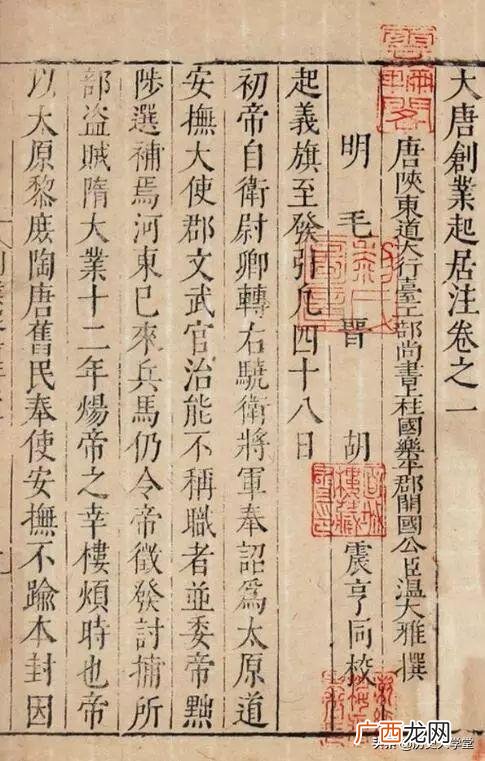 大唐創業起居注卷之一
唐陝東道大行臺工部尚書上柱國樂平郡開國公臣溫大雅撰
明 毛晉 胡震亨同校
起義旗至發引凡四十八日
初帝自衛尉卿轉右驍衛將軍奉詔為太原道
安撫大使郡文武官治能不稱職者並委帝黜
陟選補焉河東已來兵馬仍令帝徵發討捕所
部盜賊隋大業十二年煬帝之幸樓煩時也帝
以太原黎庶陶唐舊民奉使安撫不踰本封因
广西龙网